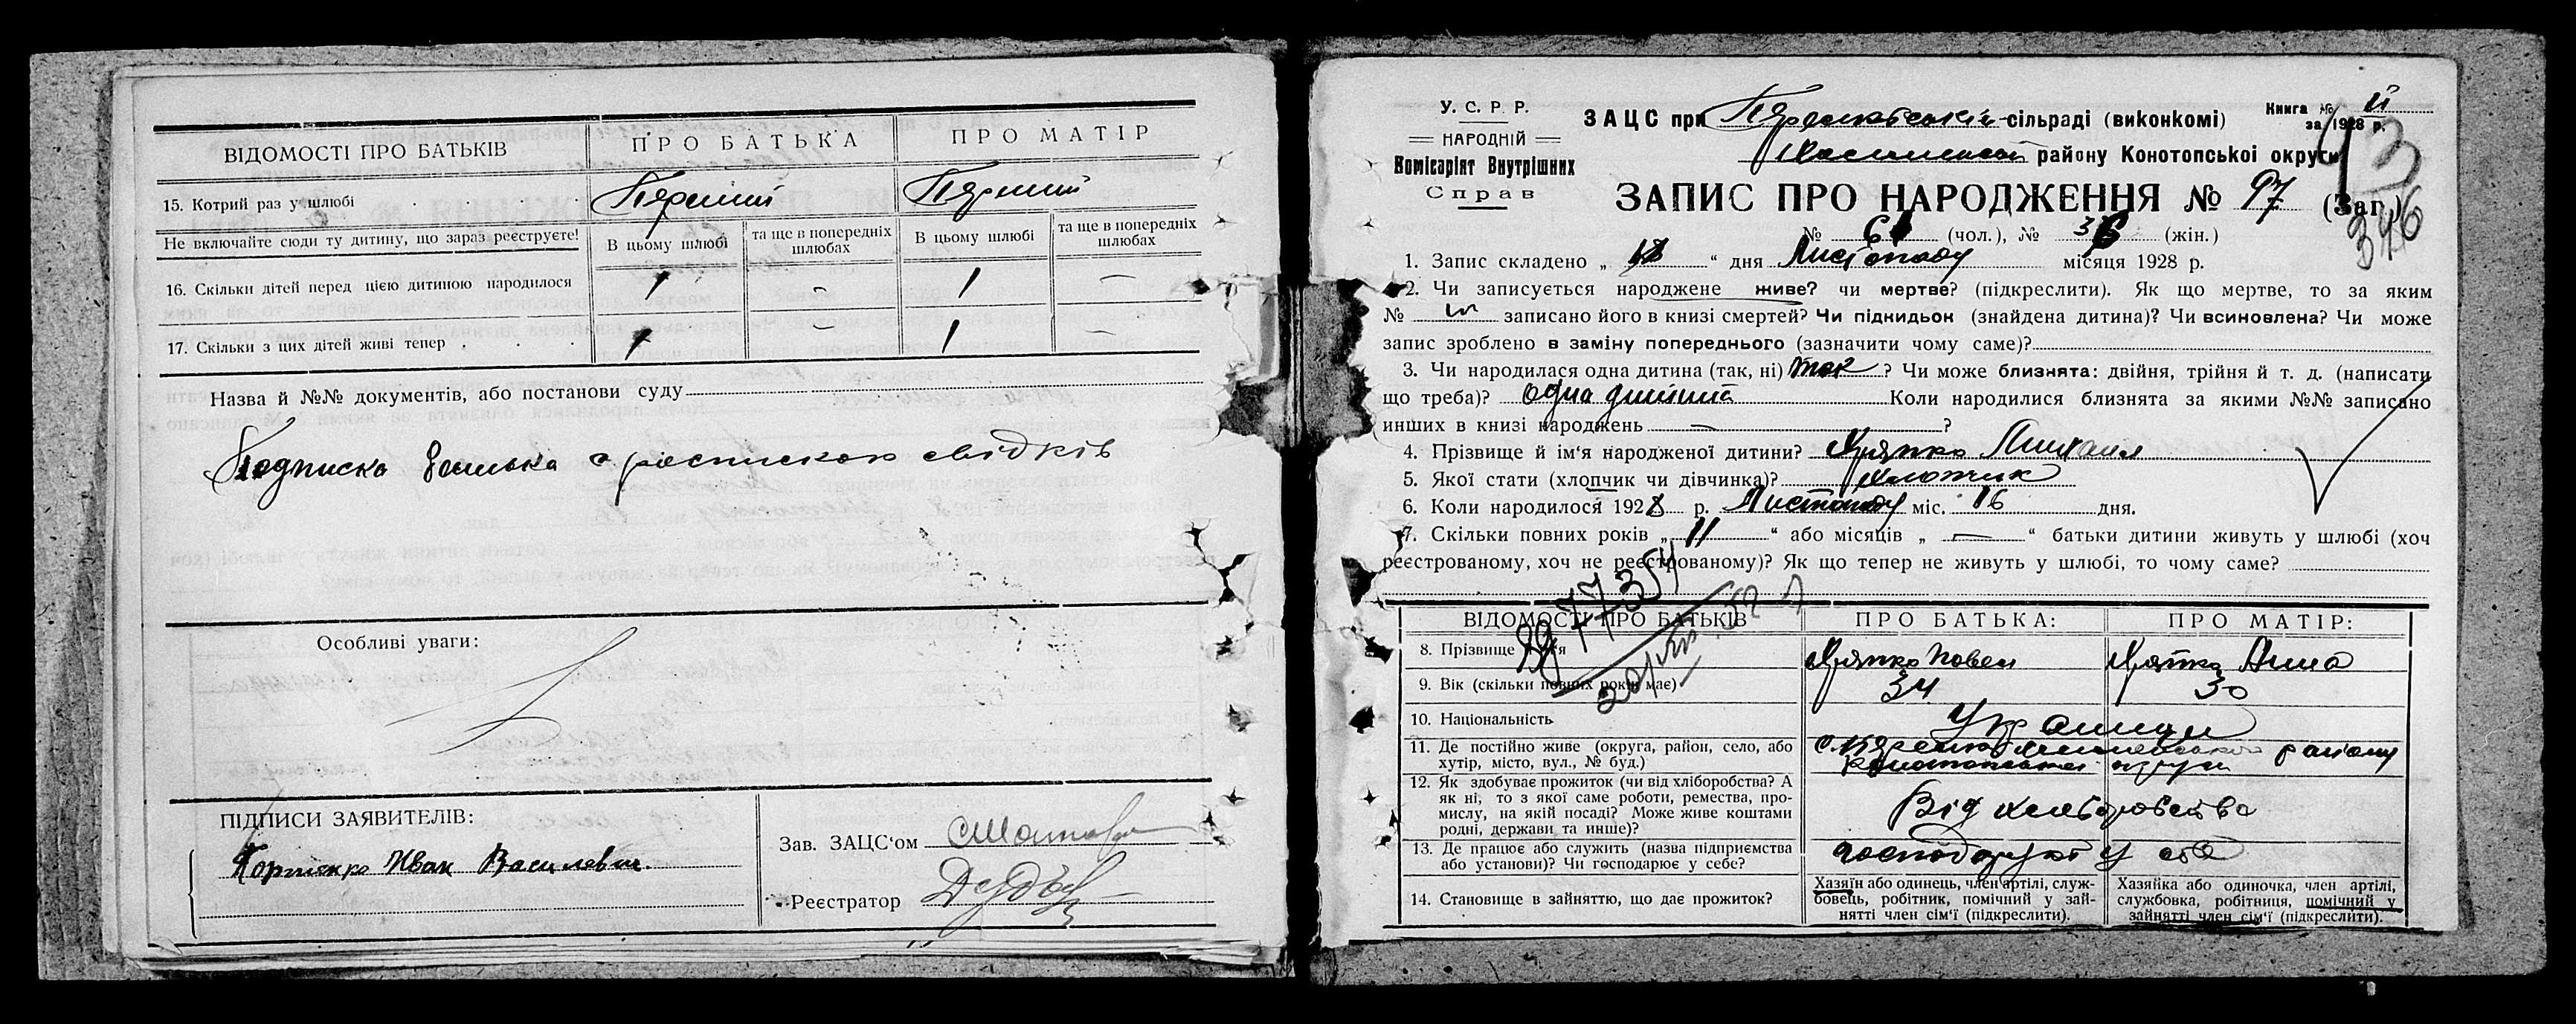 ВІДОМОСТІ ПРО БАТЬКІВ
ПРО БАТЬКА
ПРО МАТІР
15. Котрий раз у шлюбі
Перший
Перший
Не включайте сюди ту дитину, що зараз реєструєте!
В цьому шлюбі
та ще в попередніх шлюбах
В цьому шлюбі
та ще в попередніх шлюбах
16. Скільки дітей перед цією дитиною народилося
1 – 1 –
17. Скільки з цих дітей живі тепер
1 – 1 –
Назва й №№ документів, або постанови суду
Подписка батька с роспискою свідків
Особливі уваги:
ПІДПИСИ ЗАЯВИТЕЛІВ:
Иван Василевич.
Зав. ЗАЦС'ом
Реєстратор
У. С. Р. Р.
НАРОДНІЙ
Комісаріят Внутрішних
Справ
ЗАЦС при сільраді (виконкомі)
району Конотопської округи
Книга № II
за 1928 р.
ЗАПИС ПРО НАРОДЖЕННЯ № 97 (Заг.)
346
№ 61 (чол.), № 36 (жін.)
1. Запис складено „ 18 “ дня Листопаду місяця 1928 р.
2. Чи записується народжене живе? чи мертве? (підкреслити). Як що мертве, то за яким
№ записано його в книзі смертей? Чи підкидьок (знайдена дитина)? Чи всиновлена? Чи може
запис зроблено в заміну попереднього (зазначити чому саме)?
3. Чи народилася одна дитина (так, ні) так ? Чи може близнята: двійня, трійня й т. д. (написати
що треба)? одна дитина Коли народилися близнята за якими №№ записано
инших в книзі народжень — ?
4. Прізвище й ім'я народженої дитини? Хряпко Михаил
5. Якої стати (хлопчик чи дівчинка)? Хлопчик
6. Коли народилося 1928 р. Листопаду міс. 16 дня.
7. Скільки повних років „ 11 “ або місяців „ — “ батьки дитини живуть у шлюбі (хоч
реєстрованому, хоч не реєстрованому)? Як що тепер не живуть у шлюбі, то чому саме?
ВІДОМОСТІ ПРО БАТЬКІВ
ПРО БАТЬКА:
ПРО МАТІР:
8. Прізвище
Хряпко Повел
Хряпко Анна
9. Вік (скільки повних років має)
34
30
10. Національність
Украинци
11. Де постійно живе (округа, район, село, або
хутір, місто, вул., № буд.)
району
Конотопської округи
12. Як здобуває прожиток (чи від хліборобства? А
як ні, то з якої саме роботи, ремества, про-
мислу, на якій посаді? Може живе коштами
родні, держави та инше)?
Від хлеборобства
13. Де працює або служить (назва підприємства
або установи)? Чи господарює у себе?
господарують у себе
14. Становище в зайняттю, що дає прожиток?
Хазяїн або одинець, член артілі, служ-
бовець, робітник, помічний у зай-
нятті член сім'ї (підкреслити).
Хазяйка або одиночка, член артілі,
службовка, робітниця, помічний у
зайнятті член сім'ї (підкреслити).